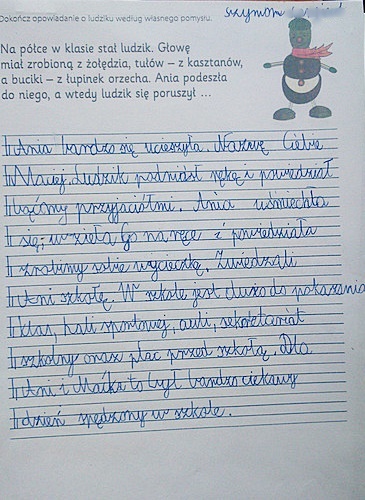 Dokończ opowiadanie o ludziku według własnego pomysłu.
Szymon
Na półce w klasie stał ludzik. Głowę
miał zrobioną z żołędzia, tułów – z kasztanów,
a buciki – z łupinek orzecha. Ania podeszła
do niego, a wtedy ludzik się poruszył ...
Ania bardzo się ucieszyła. Nazwę Ciebie
Maciej. Ludzik podniósł rękę i powiedział
bądźmy przyjaciółmi. Ania uśmiechła
się, wzieła go na ręce i powiedziała
zrobimy sobie wycieczkę. Zwiedzali
Ani szkołę. W szkole jest dużo do pokazania
klas, hali sportowej, auli, sekretariat
szkolny oraz plac przed szkołą. Dla
Ani i Maćka to był bardzo ciekawy
dzień spędzony w szkole.